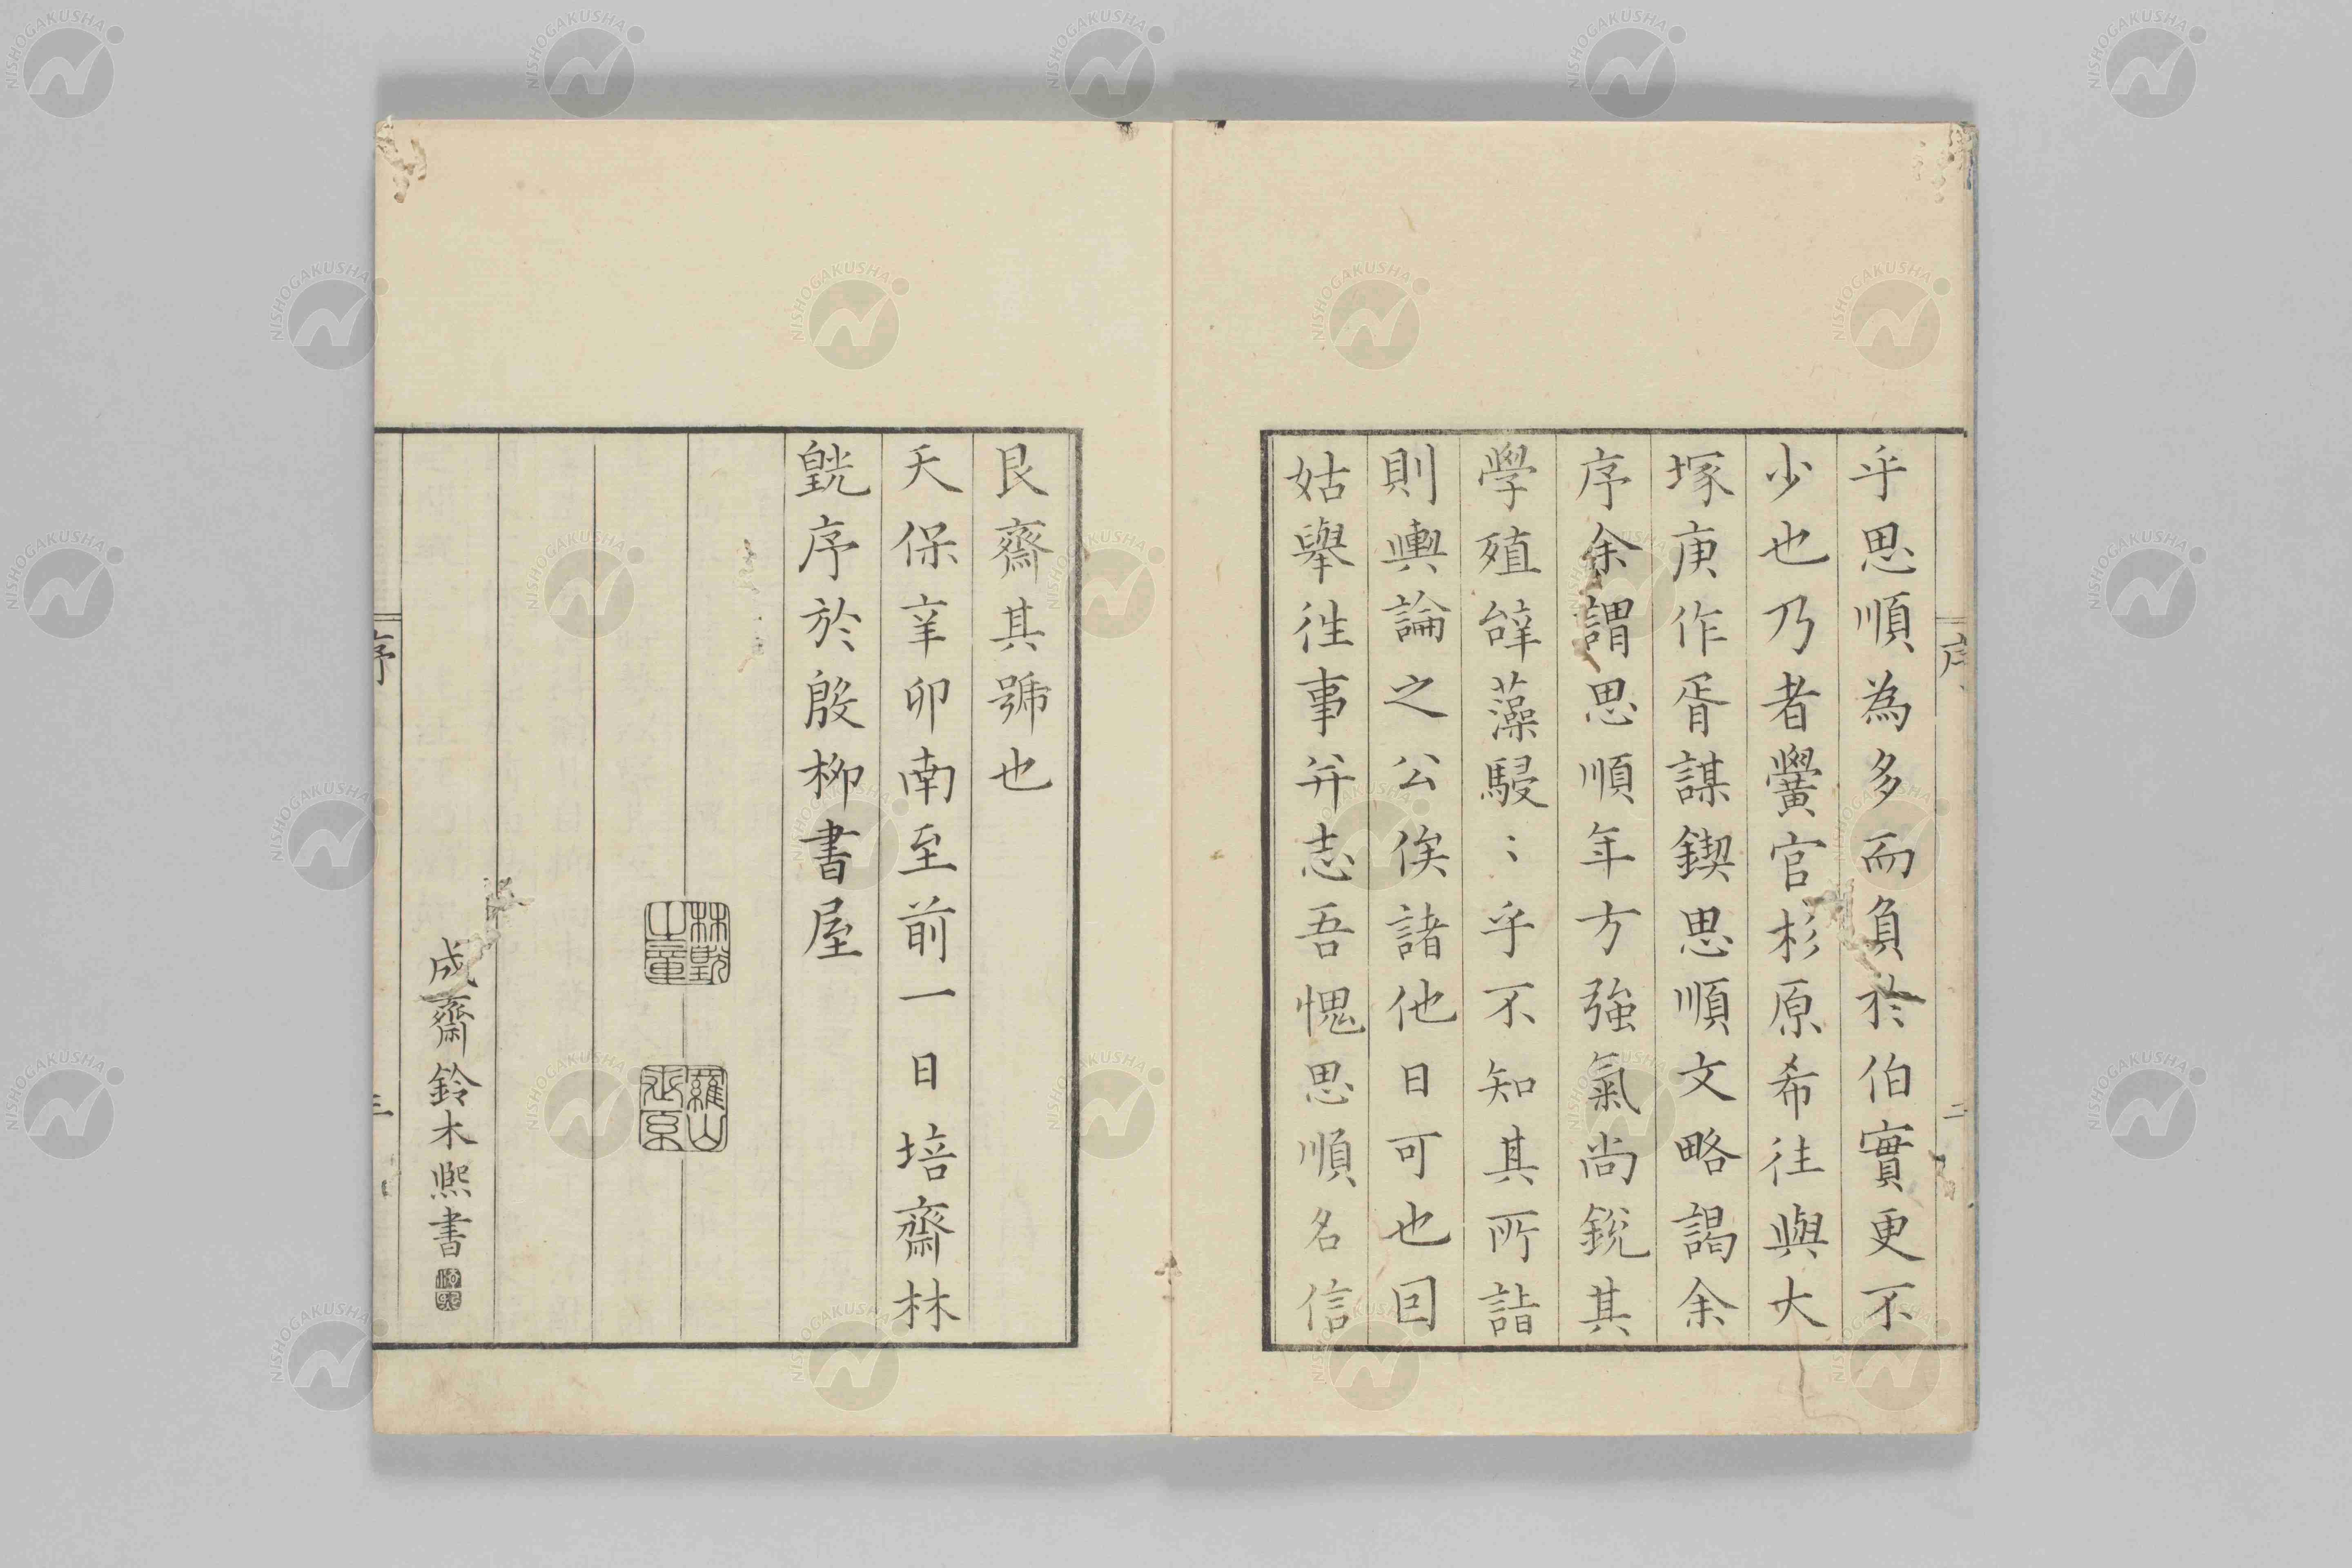 乎思順為多而負於伯實更不
少也乃者黌官杉原希徃與大
塚庚作胥謀鍥思順文略謁余
序余謂思順年方強氣尚銳其
學殖辭藻駸〻乎不知其所詣
則輿論之公俟諸他日可也回
姑舉徃事并志吾愧思順名信
序
二
艮齋其號也
天保辛卯南至前一日培齋林
皝序於殷柳書屋
林皝之章
成齋鈴木熙書
序
三
NISHOGAKUSHA